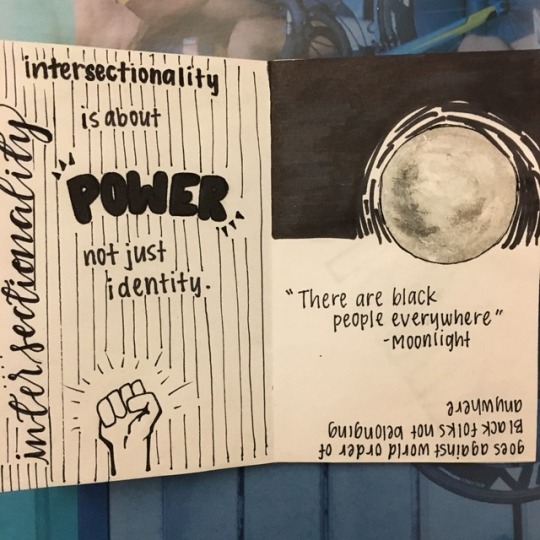 intersectionality
intersectionality
is about
POWER
not just
identity.
"There are black
people everywhere"
-Moonlight
goes against world order of
Black folks not belonging
anywhere